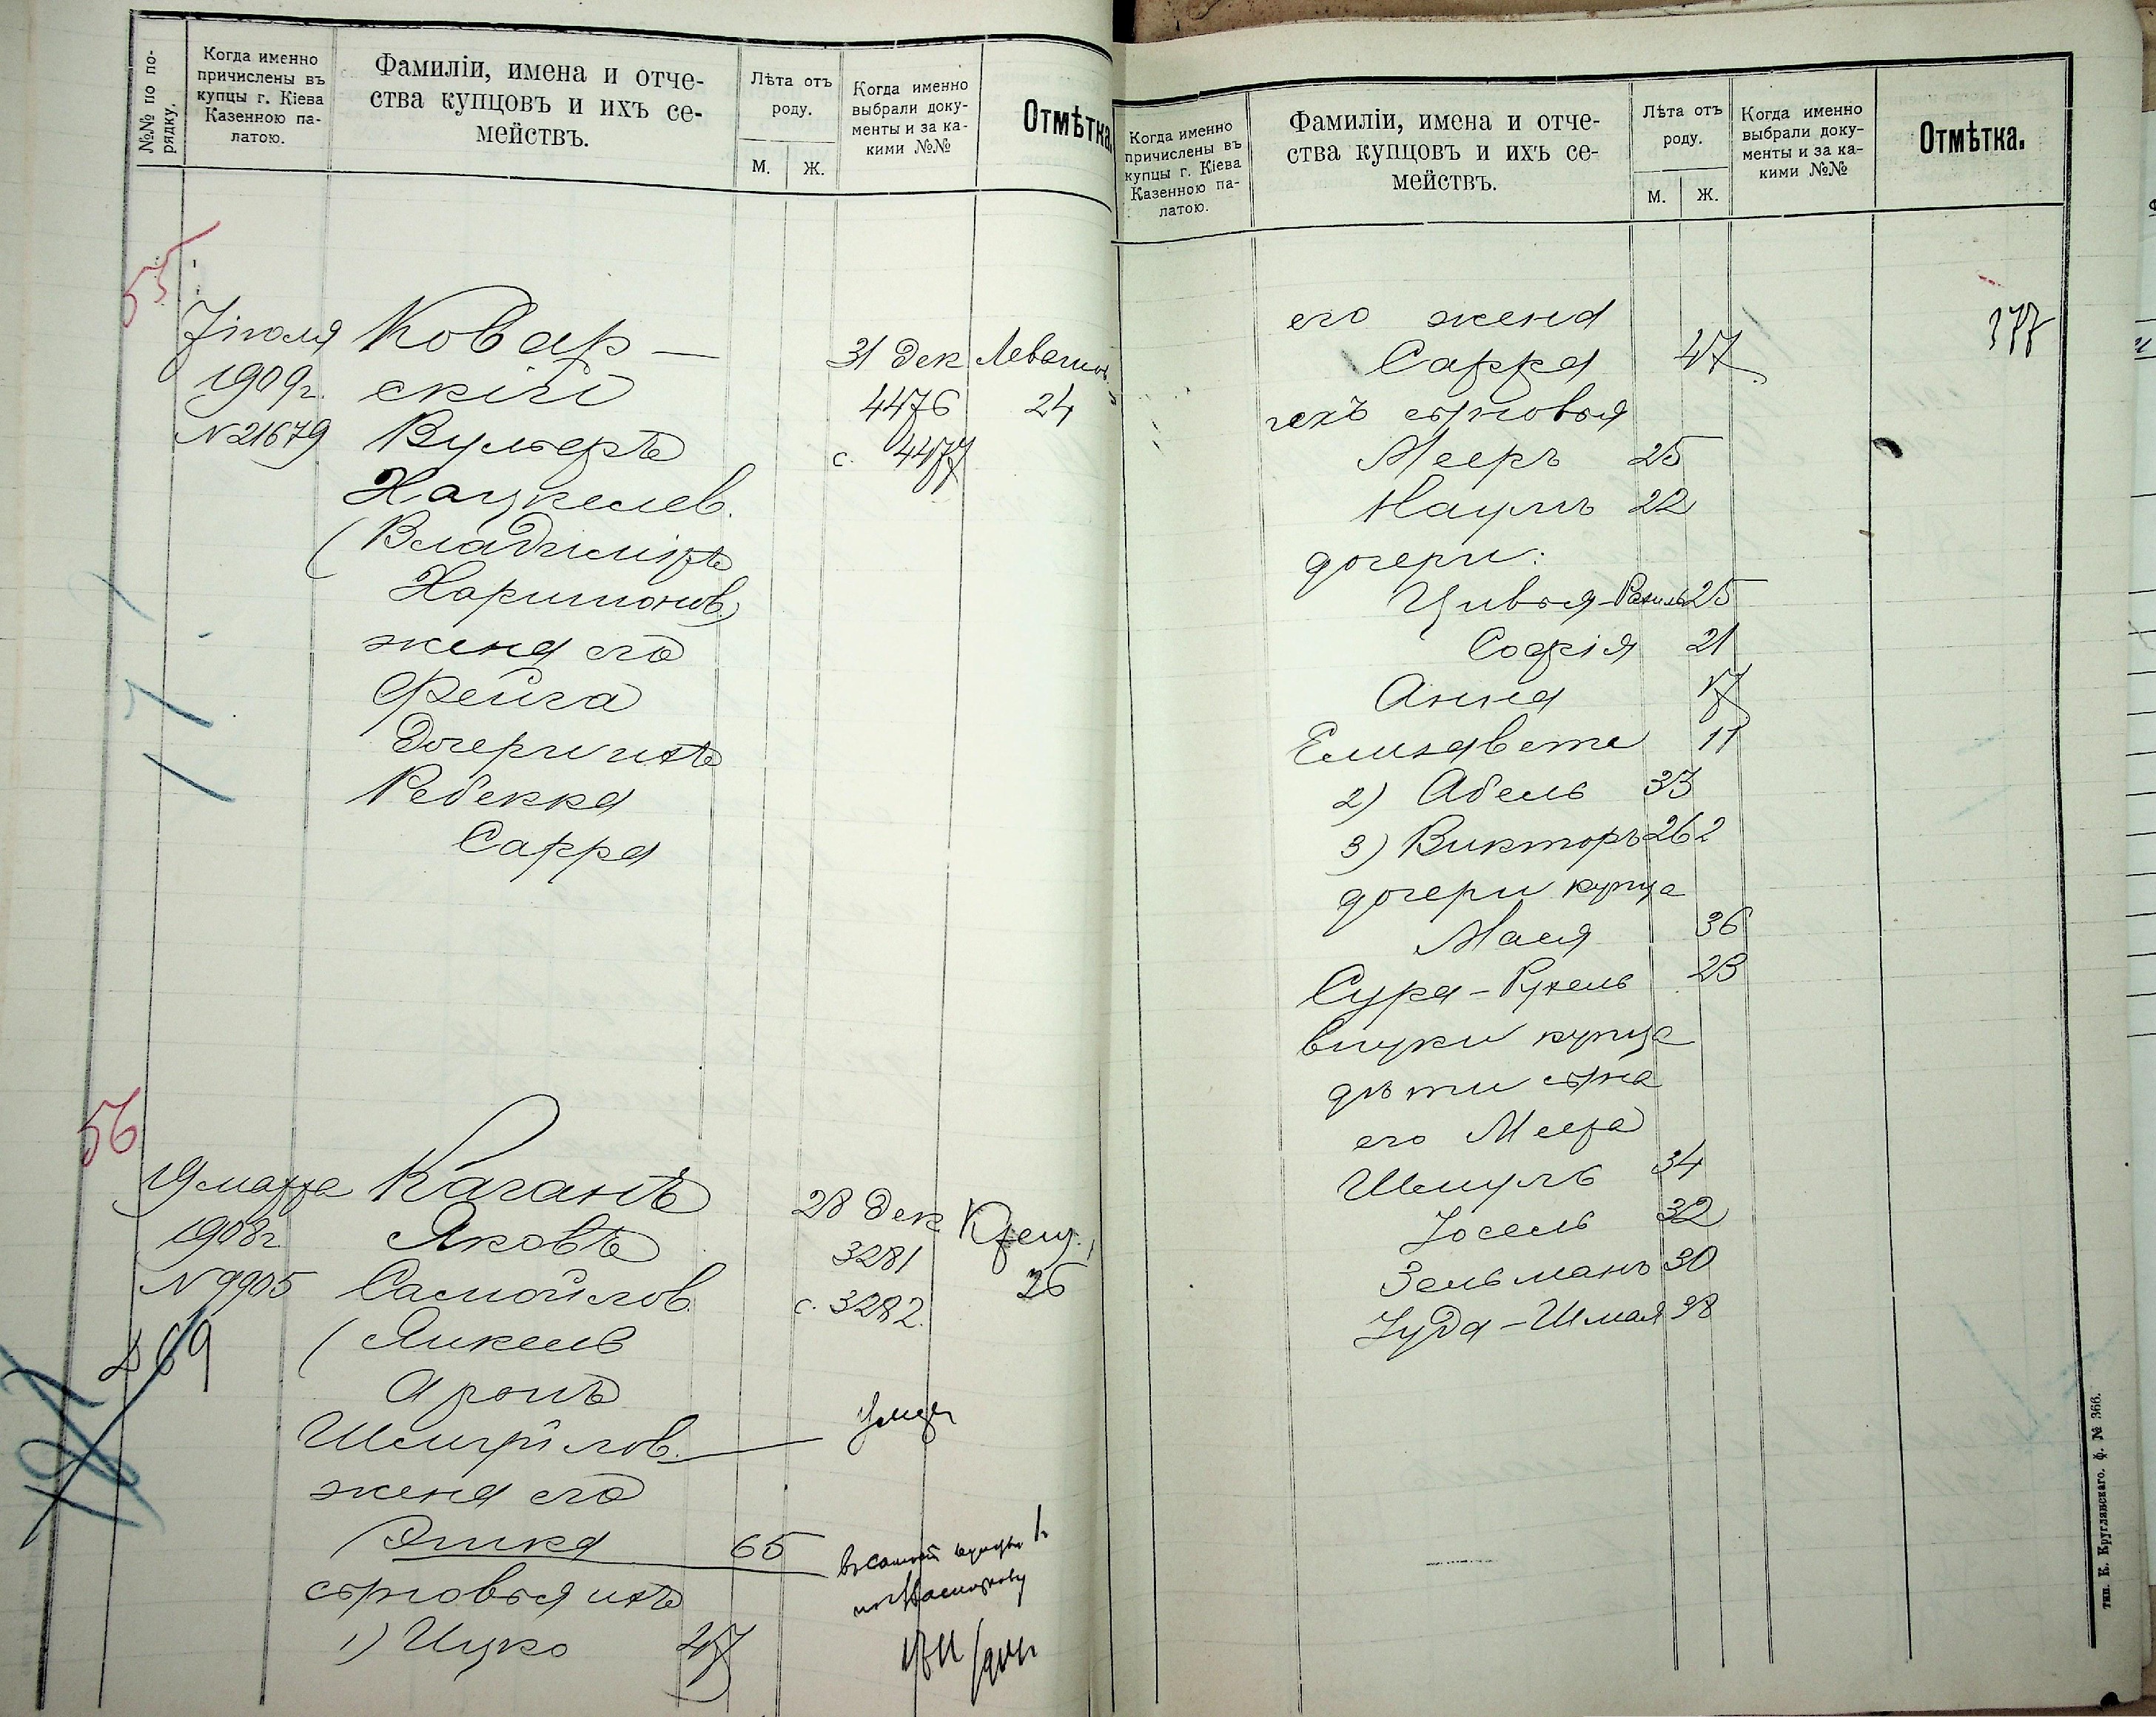 №№ по по-
рядку.
Когда именно
причислены въ
купцы г. Кіева
Казенною па-
латою.
Фамиліи, имена и отче-
ства купцовъ и ихъ се-
мействъ.
Лѣта отъ
роду.
М. Ж.
Когда именно
выбрали доку-
менты и за ка-
кими №№
Отмѣтка
55
7 іюля
1909г.
№ 21679
Ковар-
скій
Вульфъ
Нацкелев.
(Владиміръ
Харитонов)
жена его
Фейга
дочери ихъ
Ребекка
Сарра
31 Дек
4476
с. 4477
Левашов.
24
177
56
19 марта
1908г.
№ 9905
Каганъ
Яковъ
Самойлов.
(Янкель
Аронъ
Шмуйлов.
жена его
Эшка 65
сыновья ихъ
1) Ицко 47
28 Дек
3281
с. 3282.
Крещ.
26
69
Когда именно
причислены въ
купцы г. Кіева
Казенною па-
латою.
Фамиліи, имена и отче-
ства купцовъ и ихъ се-
мействъ.
Лѣта отъ
роду.
М. Ж.
Когда именно
выбрали доку-
менты и за ка-
кими №№
Отмѣтка.
177
его жена
Сарра 47
ихъ сыновья
Мееръ 25
Наумъ 22
дочери:
Цивья-Рахиль 25
Софія 21
Анна 17
Елизавета 11
2) Абель 33
3) Викторъ 262
дочери купца
Маля 36
Сура-Рухель 23
внуки купца
дѣти сына
его Меера
Шмулъ 34
Іосель 32
Зельманъ 30
Іуда-Шмая 28
тип. К. Круглянскаго. ф. № 366.